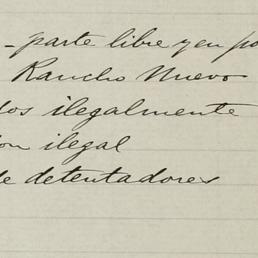 - parte libre y en po
Rancho Nuevo
dos ilegalmente
on ilegal
de detentadores